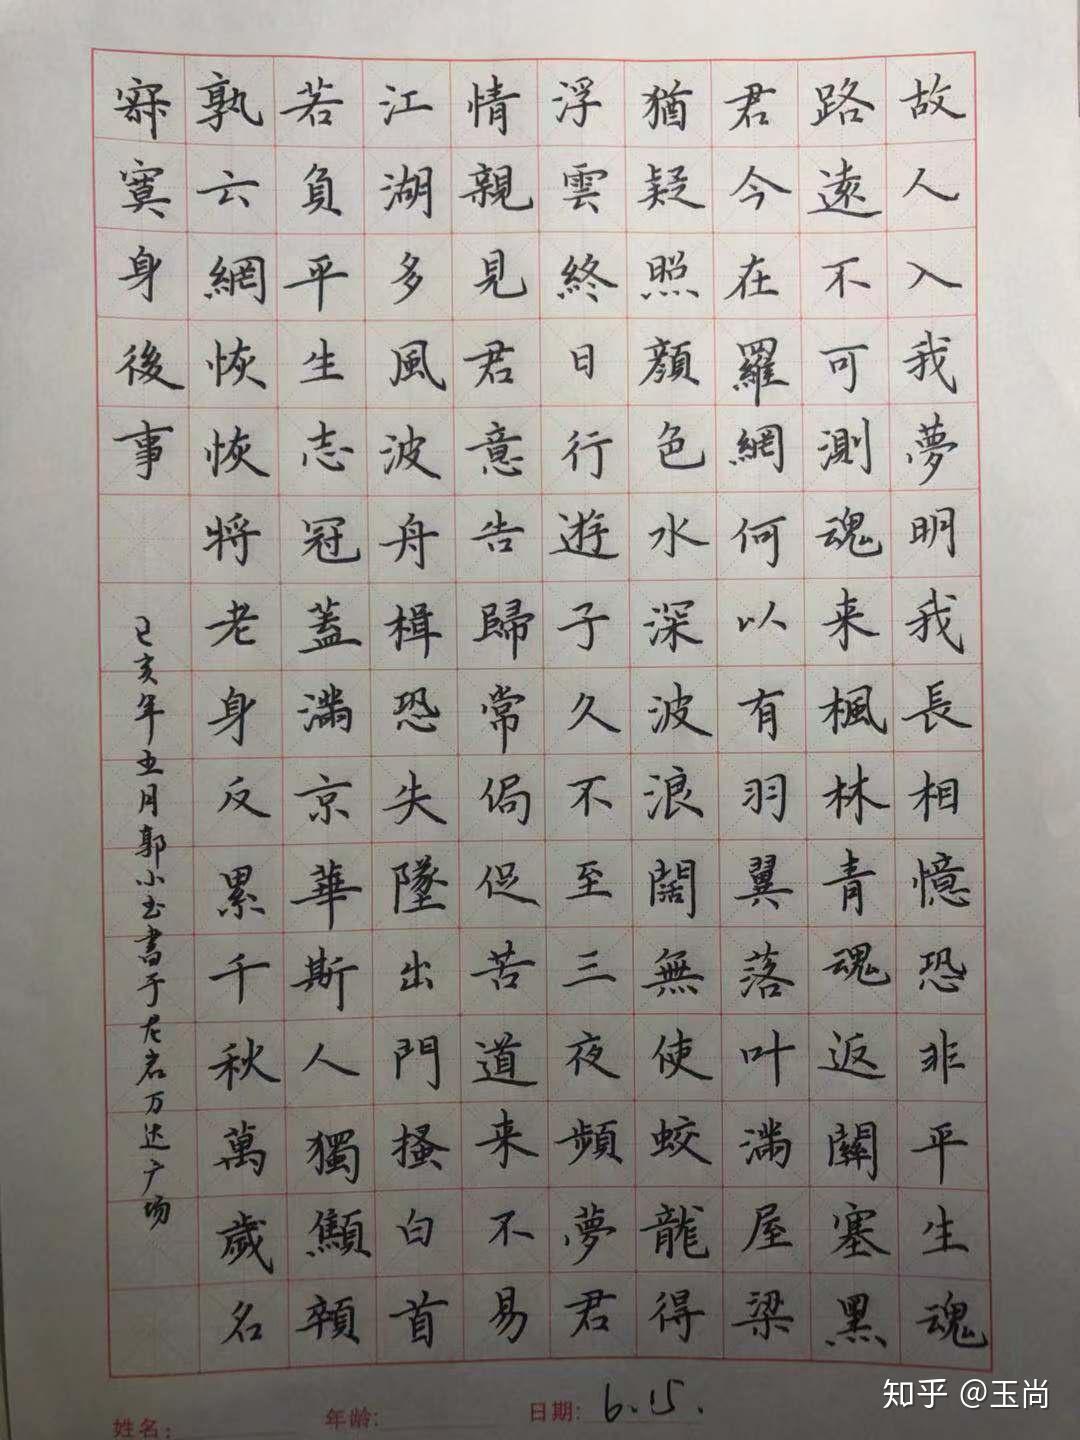 故人入我夢明我長相憶恐非平生魂
路遠不可測魂来楓林青魂返關塞黑
君今在羅網何以有羽翼落叶滿屋梁
猶疑照顏色水深波浪闊無使蛟龍得
浮雲終日行遊子久不至三夜頻夢君
情親見君意告歸常侷促苦道来不易
江湖多風波舟楫恐失墜出門搔白首
若負平生志冠蓋滿京華斯人獨顦顇
孰云網恢恢将老身反累千秋萬歲名
寂寞身後事
己亥年五月郭小玉書于龙岩万达广场
姓名: 年龄: 日期: 6.15.
知乎 @玉尚